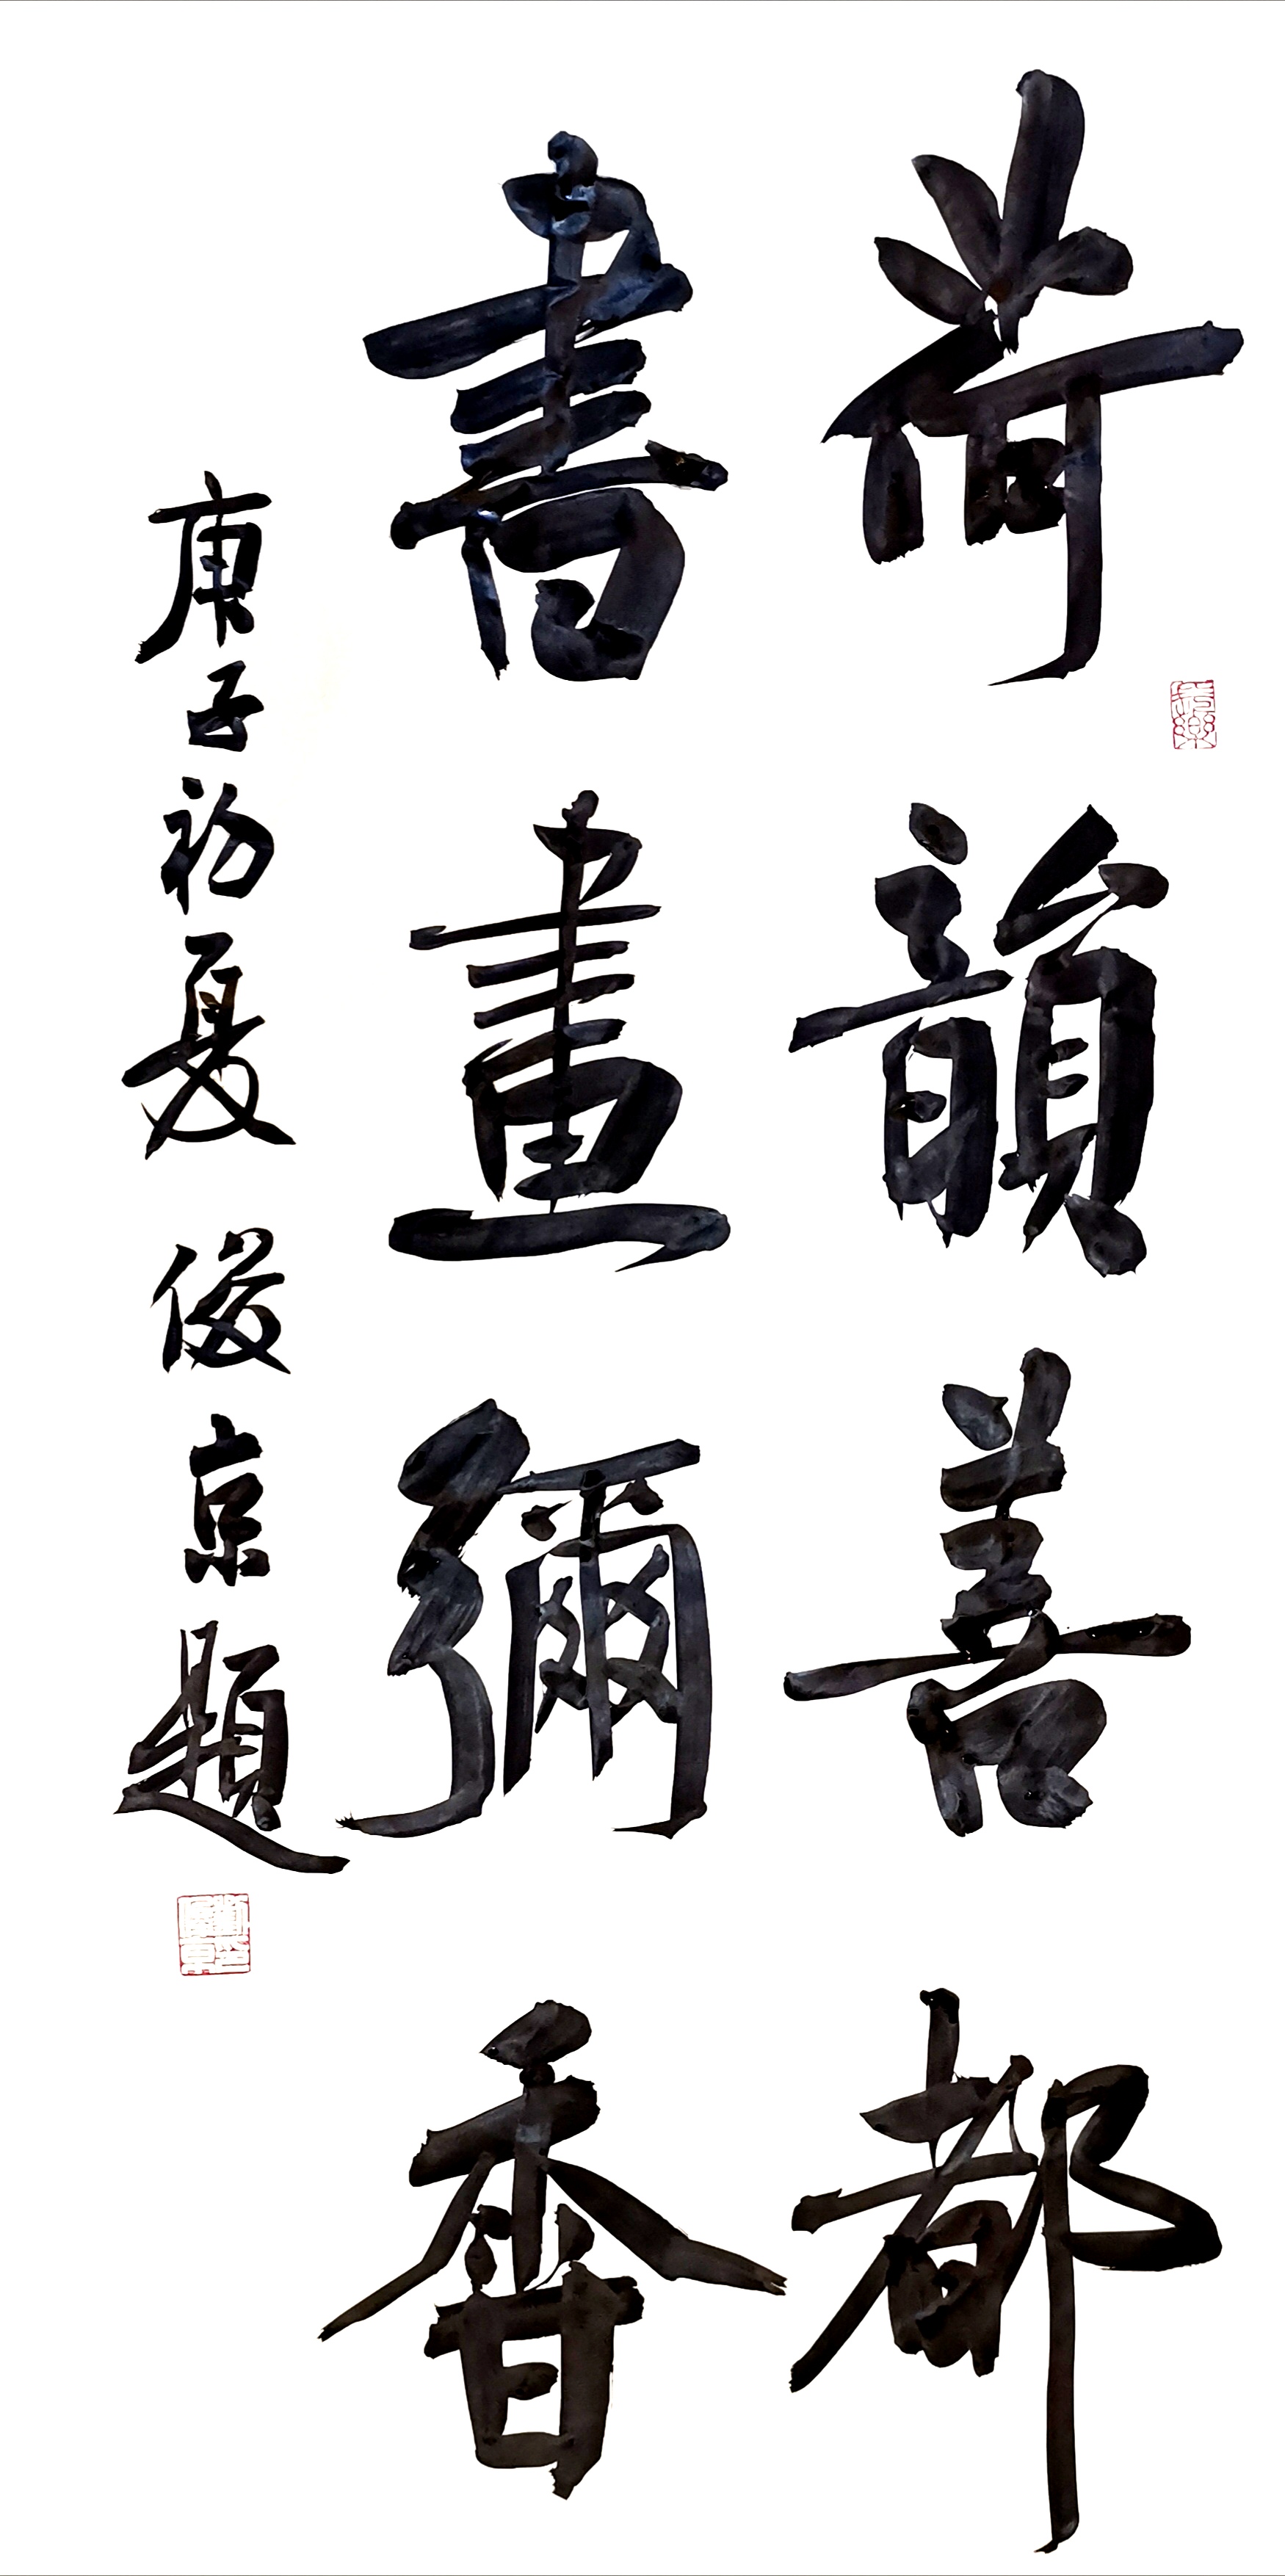 荷韻善都
書畫彌香
庚子初夏 俊京題